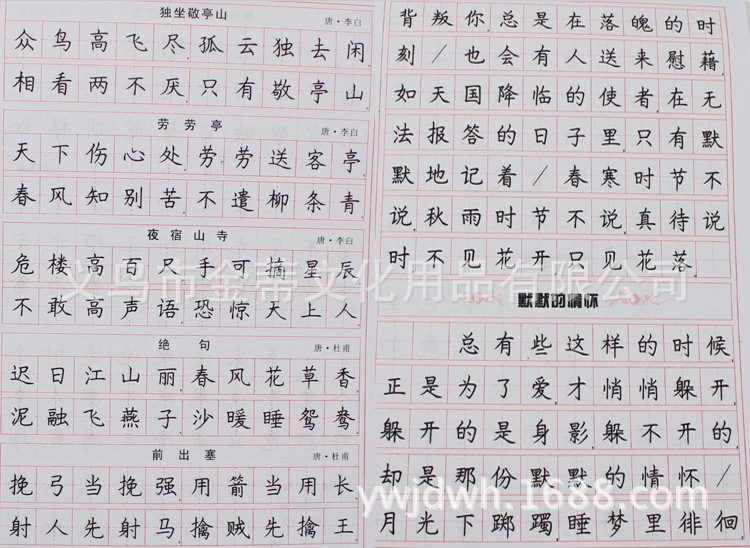 独坐敬亭山
唐·李白
众鸟高飞尽,孤云独去闲
相看两不厌,只有敬亭山,
劳劳亭
唐·李白
天下伤心处,劳劳送客亭
春风知别苦,不遣柳条青
夜宿山寺
唐·李白
危楼高百尺,手可摘星辰
不敢高声语,恐惊天上人
绝句
唐·杜甫
迟日江山丽,春风花草香
泥融飞燕子,沙暖睡鸳鸯
前出塞
唐·杜甫
挽弓当挽强,用箭当用长
射人先射马,擒贼先擒王
背叛你,总是在落魄的时
刻/也会有人送来慰藉
如天国降临的使者,在无
法报答的日子里,只有默
默地记着/春寒时节不
说,秋雨时节不说,真待说
时不见花开,只见花落,
默默的情怀
总有些这样的时候
正是为了爱才悄悄躲开
躲开的是身影,躲不开的
却是那份默默的情怀/
月光下踯躅,睡梦里徘徊
义乌市金蒂文化用品有限公司
ywjdwh.1688.com